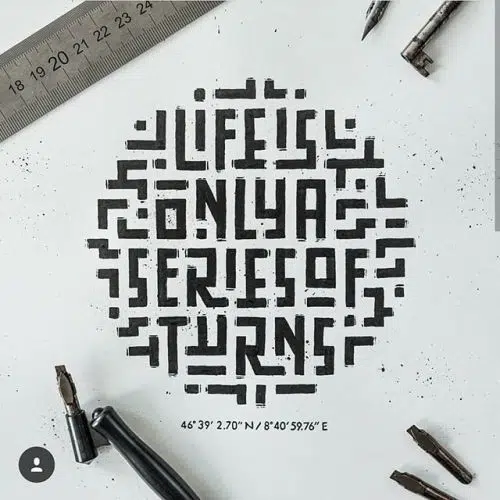 18 19 20 21 22 23 24
LIFE IS
ONLY A
SERIES OF
TURNS
46° 39' 2.70" N / 8° 40' 59.76" E